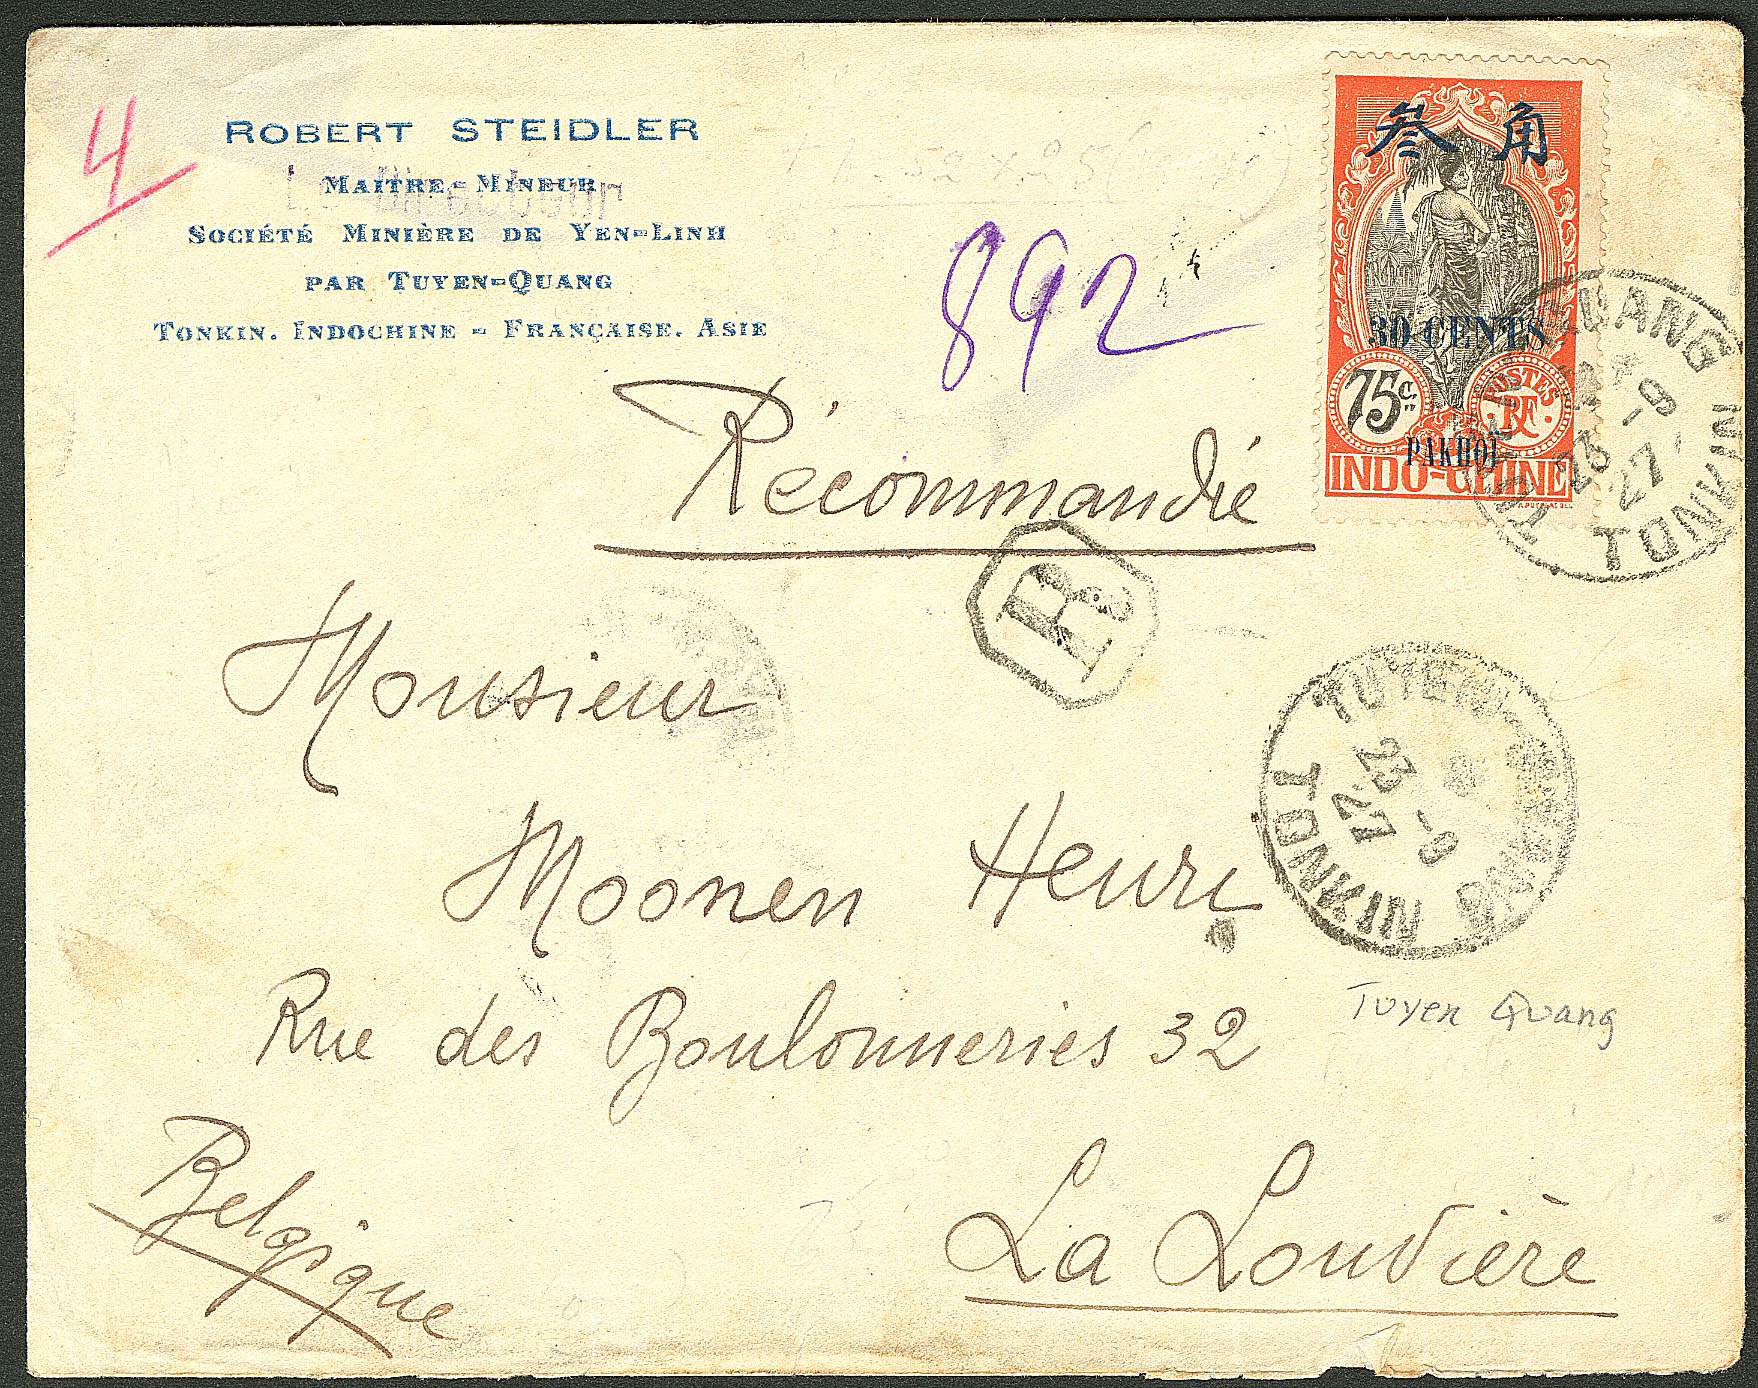 4
ROBERT STEIDLER
Le Directeur
MAITRE-MINEUR
SOCIÉTÉ MINIÈRE DE YEN-LINH
PAR TUYEN-QUANG
TONKIN. INDOCHINE - FRANÇAISE. ASIE
892
叁角
30 CENTS
75c.
POSTES
RF
PAKHOÏ
INDO-CHINE
QUANG
23 -9
27
TONKIN
Récommandée
R
Monsieur
TUYEN QUANG
23 -9
27
TONKIN
Moonen Henri
Rue des Boulonneries 32
Tuyen Quang
Belgique
La Louvière